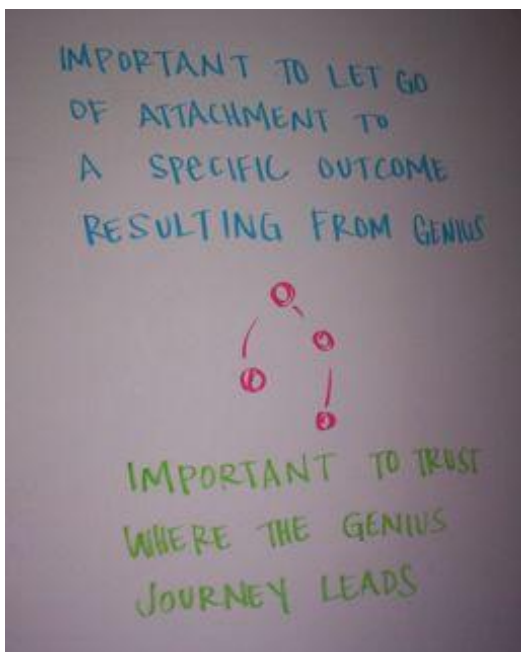 IMPORTANT TO LET GO
OF ATTACHMENT TO
A SPECIFIC OUTCOME
RESULTING FROM GENIUS
IMPORTANT TO TRUST
WHERE THE GENIUS
JOURNEY LEADS